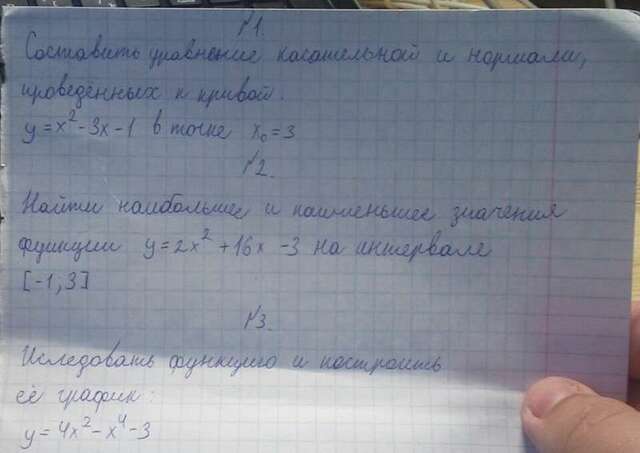 №1.
Составить уравнение касательной и нормали,
проведённых к кривой.
y=x²-3x-1 в точке x₀=3
№2.
Найти наибольшее и наименьшее значения
функции y=2x²+16x-3 на интервале
[-1;3]
№3.
Иследовать функцию и построить
её график:
y=4x²-x⁴-3